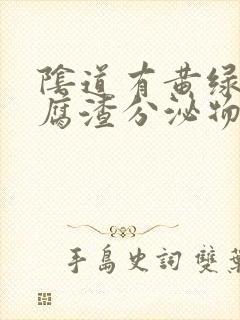 陰道有黄绿
腐渣分泌物
手島史詞 雙葉